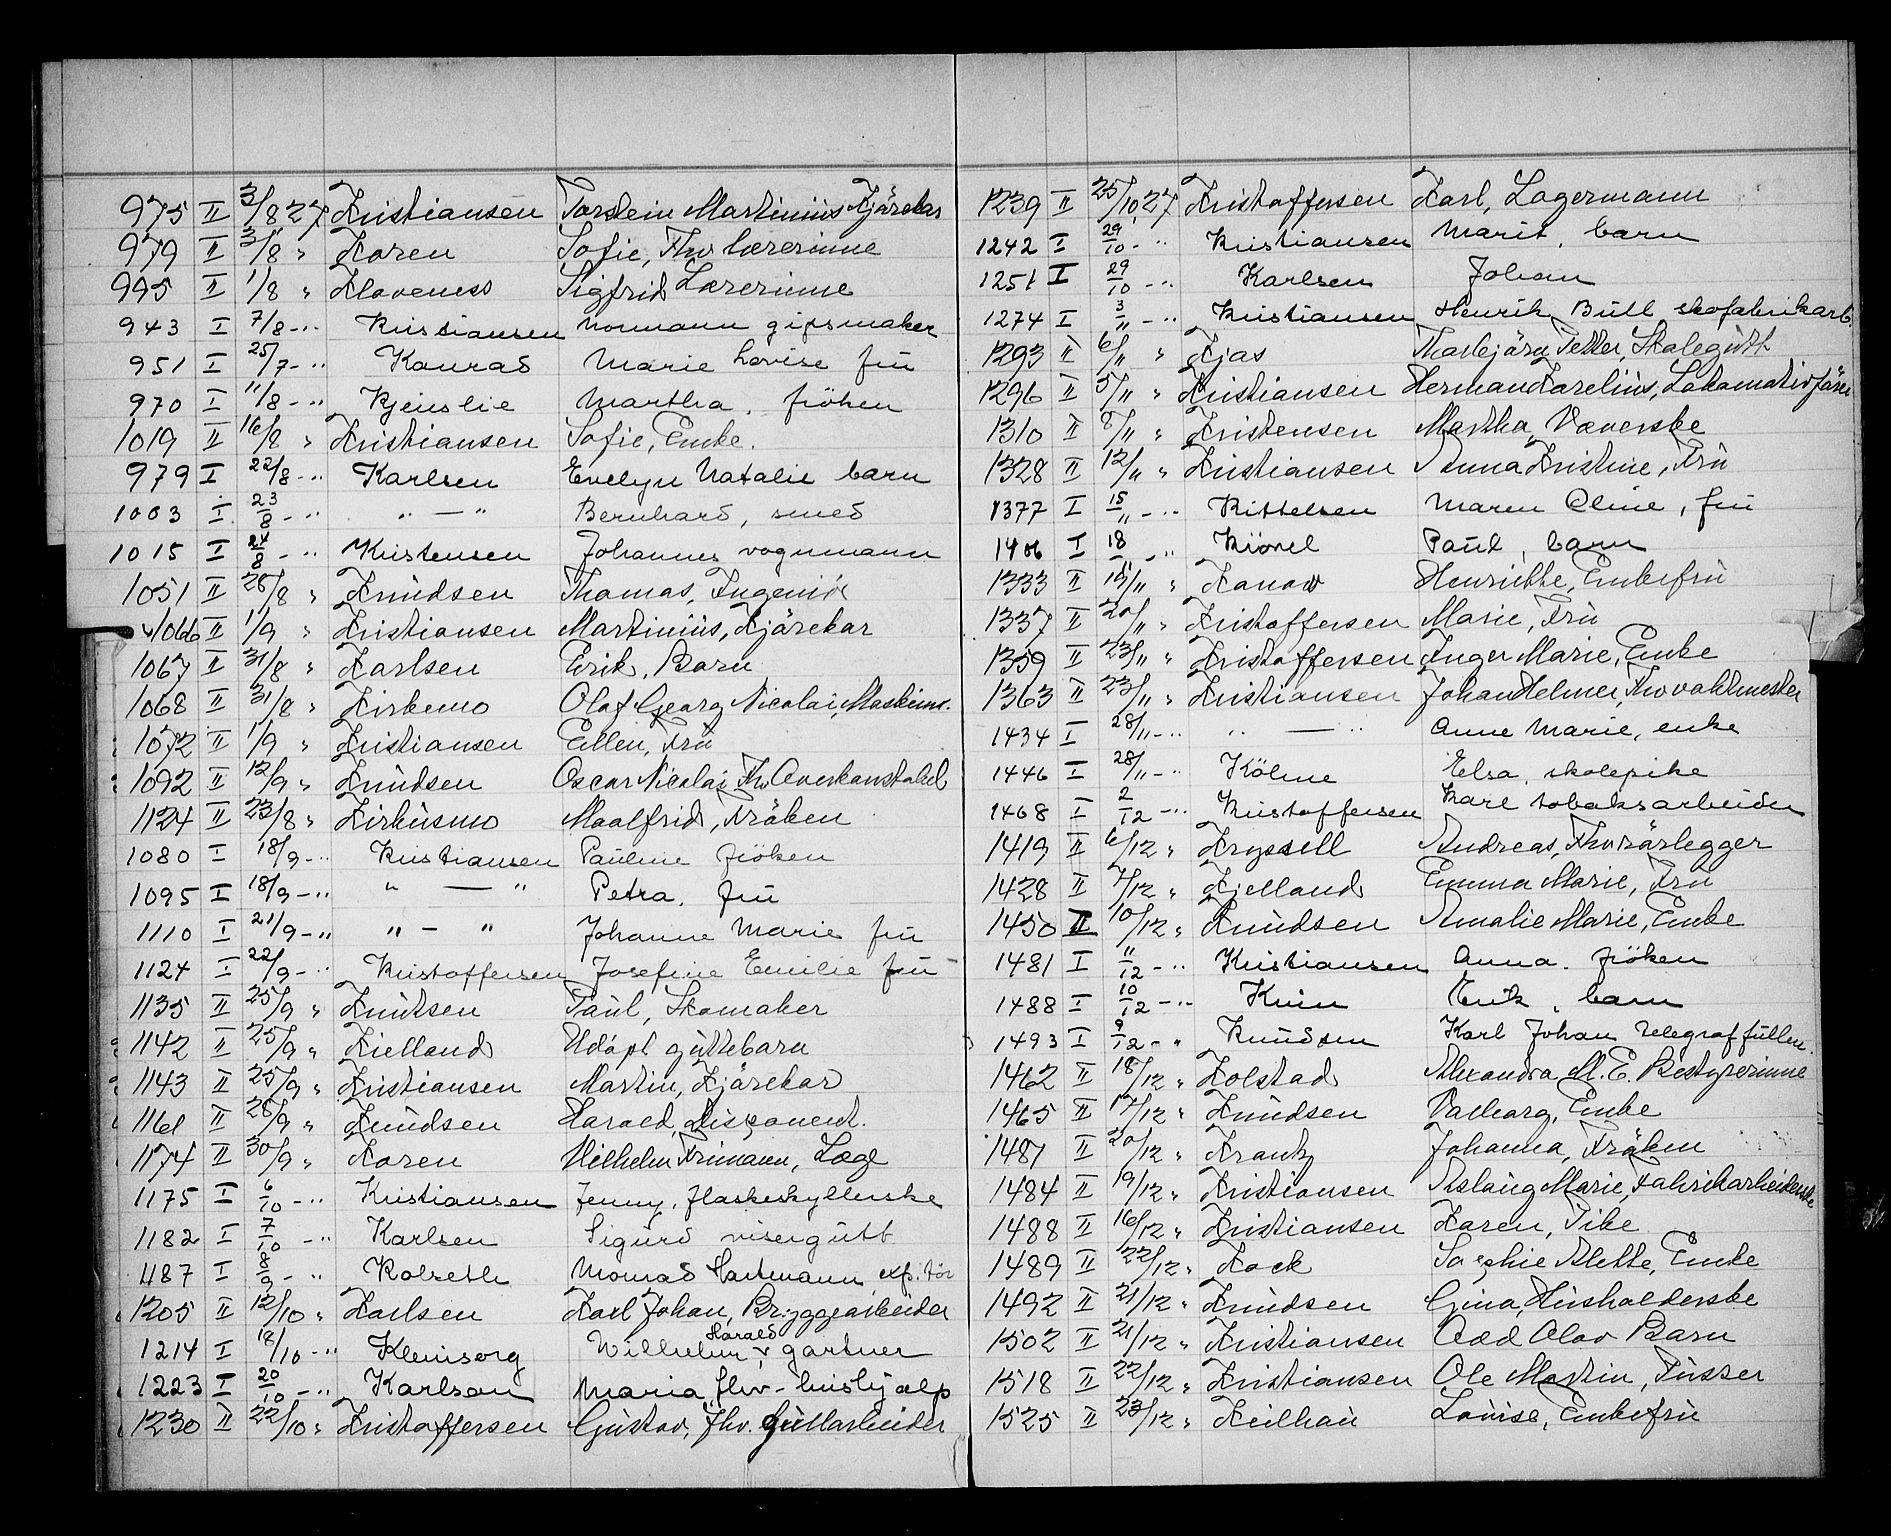 975 II 3/8 27 Kristiansen Torstein Martinius Kjørekar
979 II 3/8 " Koren Sofie, Fhv Lærerinne
995 II 1/8 " Klaveness Sigfrid Lærerinne
943 I 7/8 - " Kristiansen Normann gipsmaker
951 I 25/7 - " Konrad Marie Lovise fru
970 I 11/8 - " Kjenslie Martha, frøken
1019 II 16/8 " Kristiansen Sofie, Enke.
979 I 22/8 - " Karlsen Evelyn Natalie barn
1003 I 23/8 - " " — " Bernhard, smed
1015 I 24/8 - " Kristensen Johannes vognmann
1051 II 28/8 " Knudsen Thomas, Ingeniør
1066 II 1/9 " Kristiansen Martinius, Kjørekar
1067 II 31/8 " Karlsen Erik, Barn
1068 II 31/8 " Kirkemo Olaf Georg Nicolai, Maskinm.
1072 II 1/9 " Kristiansen Ellen, Fru
1092 II 12/9 " Knudsen Oscar Nicolai Fhv Overkonstabel
1124 II 23/8 " Kirkusmo Maalfrid, Frøken
1080 I 18/9 - " Kristiansen Pauline frøken
1095 I 18/9 - " " — " Petra, fru
1110 I 21/9 - " " — " Johanne Marie fru
1124 I 22/9 - " Kristoffersen Josefine Emilie fru
1135 II 25/9 " Knutsen Paul, Skomaker
1142 II 25/9 " Kielland Udøpt guttebarn
1143 II 25/9 " Kristiansen Martin, Kjørekar
1161 II 28/9 " Knudsen Harald, Disponent.
1174 II 30/9 " Koren Wilhelm Frimann, Læge
1175 I 6/10 - " Kristiansen Jenny, flaskeskyllerske
1182 I 7/10 - " Karlsen Sigurd visergutt
1187 I 8/9 - " Kolseth Monrad Hartmann exp.tør
1205 II 12/10 " Karlsen Karl Johan, Bryggearbeider
1214 I 18/10 - " Kleniserg Wilhelm Harald gartner
1223 I 20/10 - " Karlson Maria fhv - hushjælp
1230 II 22/10 " Kristoffersen Gustav, fhv. Gullarbeider
1239 II 25/10 27 Kristoffersen Karl, Lagermann
1242 I 29/10 - " Kristiansen Marit, barn
1251 I 29/10 - " Karlsen Johan
1274 I 3/11 - " Kristiansen Henrik Bull skofabrikarb.
1293 II 6/11 " Kjos Thorbjørn Petter, Skolegutt
1296 II 5/11 " Kristiansen Herman Karelius, Lokomotivfører
1310 II 8/11 " Kristensen Martha, Væverske
1328 II 12/11 " Kristiansen Anna Kristine, Fru
1377 I 15/11 - " Kittelsen Maren Oline, fru
1406 I 18 - " Kiønel Paul, barn
1333 II 15/11 " Kanow Henriette, Enkefru
1337 II 20/11 " Kristoffersen Marie, Fru
1359 II 23/11 " Kristoffersen Inger Marie, Enke
1363 II 23/11 " Kristiansen Johan Helmer, Fhv vaktmester
1434 I 28/11 - " " — " Anne Marie, enke
1446 I 28/11 - " Kölme Elsa, skolepike
1468 I 2/12 - " Kristoffersen Karl tobaksarbeider
1419 II 6/12 " Kryssell Andreas, Fhv rørlegger
1428 II 7/12 " Kjelland Emma Marie, Fru
1450 II 10/12 " Knudsen Amalie Marie, Enke
1481 I 11/12 - " Kristiansen Anna, frøken
1488 I 10/12 - " Knin Erik, barn
1493 I 9/12 - " Knudsen Karl Johan telegraffullm.
1462 II 18/12 " Kolstad Alexandra M. E. Bestyrerinne
1465 II 17/12 " Knudsen Valborg, Enke
1487 II 20/12 " Krantz Johanna, Frøken
1484 II 19/12 " Kristiansen Aslaug Marie, Fabrikarbeiderske
1488 II 16/12 " Kristiansen Karen, Pike
1489 II 22/12 " Kock Sophie Alette, Enke
1492 II 21/12 " Knudsen Gina, Husholderske
1502 II 21/12 " Kristiansen Odd Olav Barn
1518 II 22/12 " Kristiansen Ole Martin, Pusser
1525 II 23/12 " Keilhau Louise, Enkefru